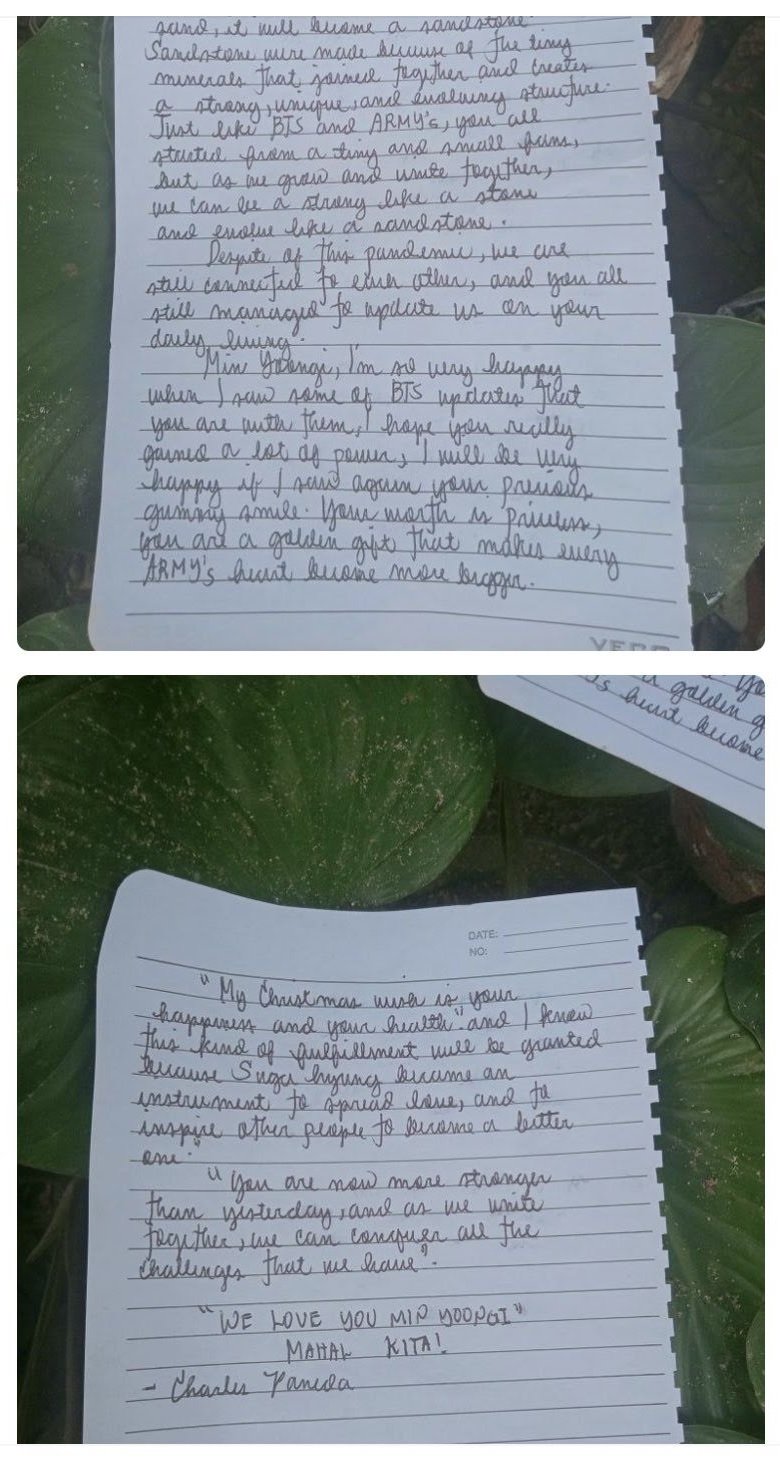 sand, it will become a sandstone
Sandstone were made because of the tiny
minerals that joined together and creates
a strong, unique, and evolving structure.
Just like BTS and ARMY's, you all
started from a tiny and small fans,
but as we grow and unite together,
we can be a strong like a stone
and evolve like a sandstone.
Despite of this pandemic, we are
still connected to each other, and you all
still managed to update us on your
daily living.
Min Yoongi, I'm so very happy
when I saw some of BTS updates that
you are with them, I hope you really
gained a lot of power, I will be very
happy if I saw again your precious
gummy smile. Your worth is priceless,
you are a golden gift that makes every
ARMY's heart become more bigger.
a golden g
's heart become
DATE:
NO:
"My Christmas wish is your
happiness and your health" and I know
this kind of fulfillment will be granted
because Suga hyung became an
instrument to spread love, and to
inspire other people to become a better
one."
"You are now more stronger
than yesterday, and as we unite
together, we can conquer all the
challenges that we have".
"WE LOVE YOU MIN YOONGI"
MAHAL KITA!
- Charles